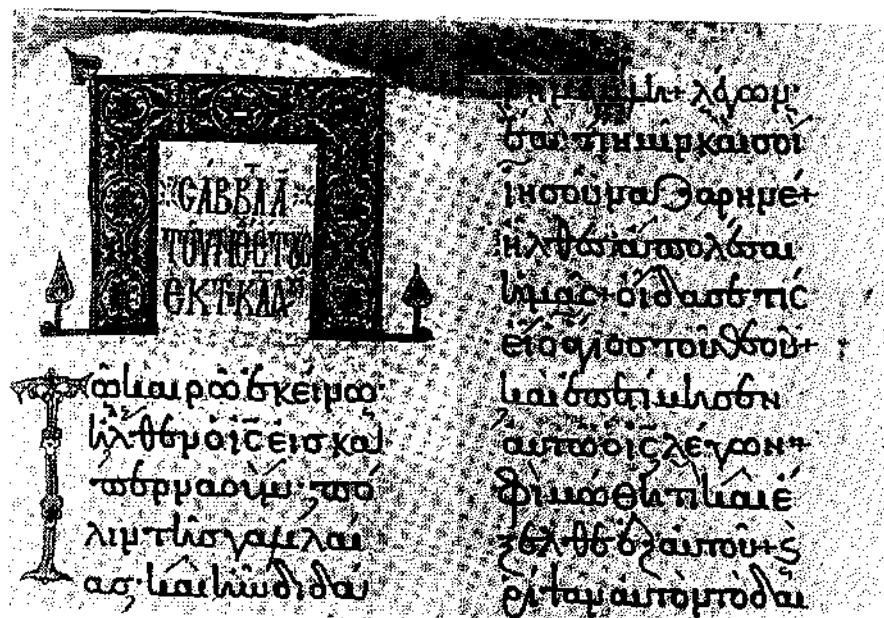 CΑΒΒΑ Α
ΕΚ Τ
Τῶ καιρῶ ἐκείνω·
ἦλθεν ὁ ι̅ς̅ εἰς κα
περναούμ· πό
λιν τῆς γαλιλαί
ας· καὶ ἦν διδά
λέγων·
ἔα· τί ἡμῖν καὶ σοὶ
ἰησοῦ ναζαρηνέ+
ἦλθες ἀπολέσαι
ἡμᾶς+ οἶδά σε τίς
εἶ ὁ ἅγιος τοῦ θεοῦ+
καὶ ἐπετίμησεν
αὐτῶ ὁ ι̅ς̅ λέγων+
φιμώθητι καὶ ἔ
ξελθε ἐξ αὐτοῦ+ ϛ
ῥίψαν αὐτὸν τὸ δαι